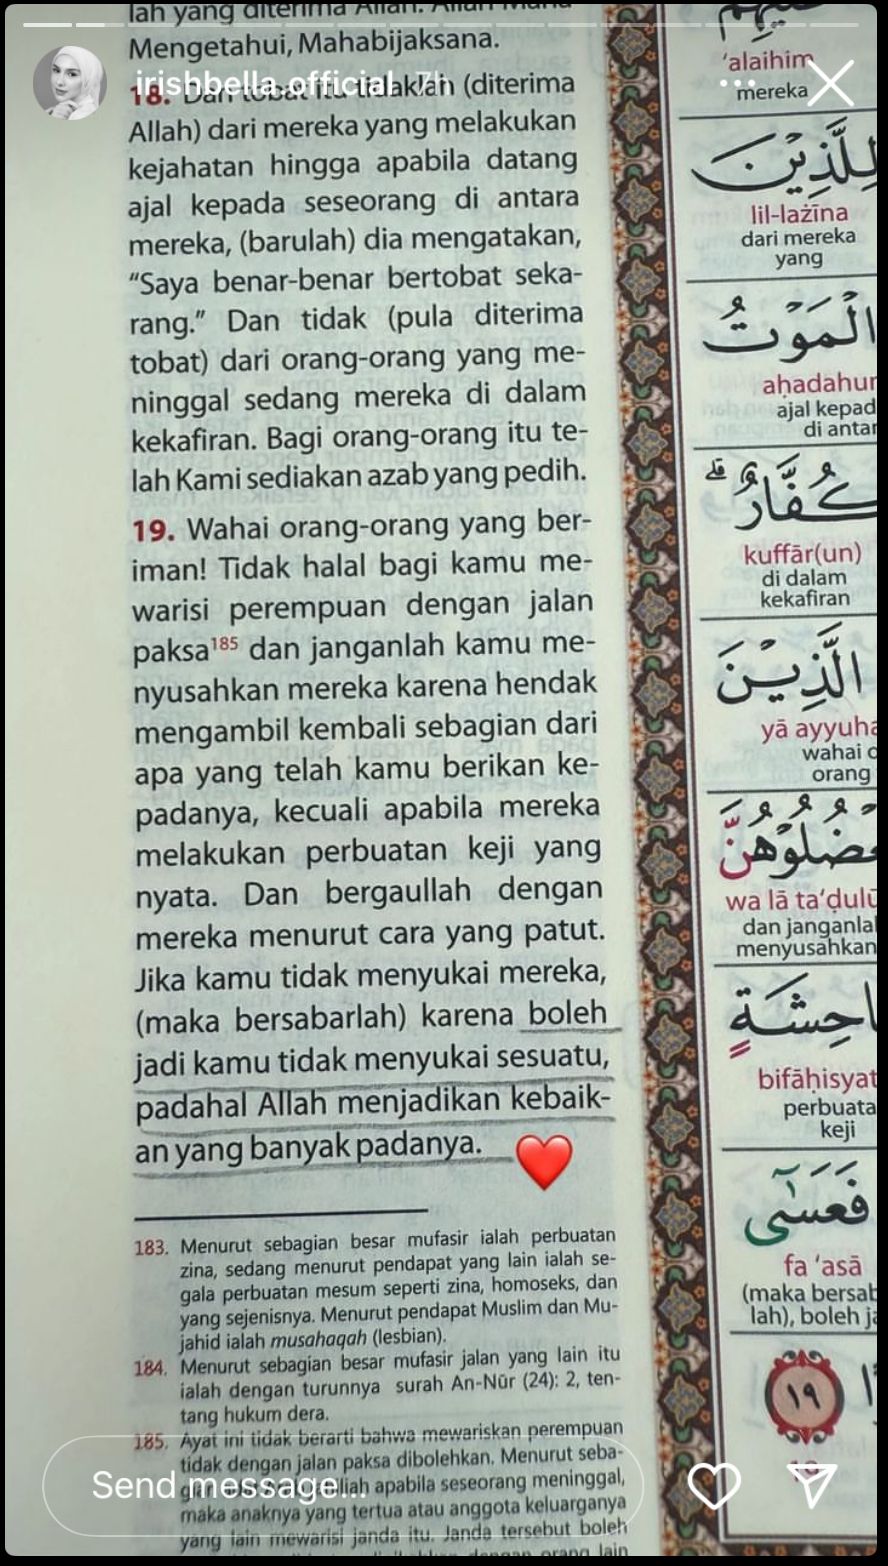 lah yang diterima Allah. Allah Maha
Mengetahui, Mahabijaksana.
irishbella.official 7h
18. Dan tobat itu tidaklah (diterima
Allah) dari mereka yang melakukan
kejahatan hingga apabila datang
ajal kepada seseorang di antara
mereka, (barulah) dia mengatakan,
“Saya benar-benar bertobat seka-
rang.” Dan tidak (pula diterima
tobat) dari orang-orang yang me-
ninggal sedang mereka di dalam
kekafiran. Bagi orang-orang itu te-
lah Kami sediakan azab yang pedih.
19. Wahai orang-orang yang ber-
iman! Tidak halal bagi kamu me-
warisi perempuan dengan jalan
paksa185 dan janganlah kamu me-
nyusahkan mereka karena hendak
mengambil kembali sebagian dari
apa yang telah kamu berikan ke-
padanya, kecuali apabila mereka
melakukan perbuatan keji yang
nyata. Dan bergaullah dengan
mereka menurut cara yang patut.
Jika kamu tidak menyukai mereka,
(maka bersabarlah) karena boleh
jadi kamu tidak menyukai sesuatu,
padahal Allah menjadikan kebaik-
an yang banyak padanya. ❤️
183. Menurut sebagian besar mufasir ialah perbuatan
zina, sedang menurut pendapat yang lain ialah se-
gala perbuatan mesum seperti zina, homoseks, dan
yang sejenisnya. Menurut pendapat Muslim dan Mu-
jahid ialah musahaqah (lesbian).
184. Menurut sebagian besar mufasir jalan yang lain itu
ialah dengan turunnya surah An-Nūr (24): 2, ten-
tang hukum dera.
185. Ayat ini tidak berarti bahwa mewariskan perempuan
tidak dengan jalan paksa dibolehkan. Menurut seba-
apabila seseorang meninggal,
maka anaknya yang tertua atau anggota keluarganya
yang lain mewarisi janda itu. Janda tersebut boleh
orang lain
Send message...
‘alaihim
mereka
لِلَّذِيْنَ
lil-lażīna
dari mereka
yang
الْمَوْتُ
aḥadahu
ajal kepad
di antar
كُفَّارٌ ۗ
kuffār(un)
di dalam
kekafiran
الَّذِيْنَ
yā ayyuha
wahai o
orang
عْضُلُوْهُنَّ
wa lā ta‘ḍulū
dan janganlal
menyusahkan
احِشَةٍ
bifāḥisyat
perbuata
keji
فَعَسٰٓى
fa ‘asā
(maka bersab
lah), boleh ja
١٩